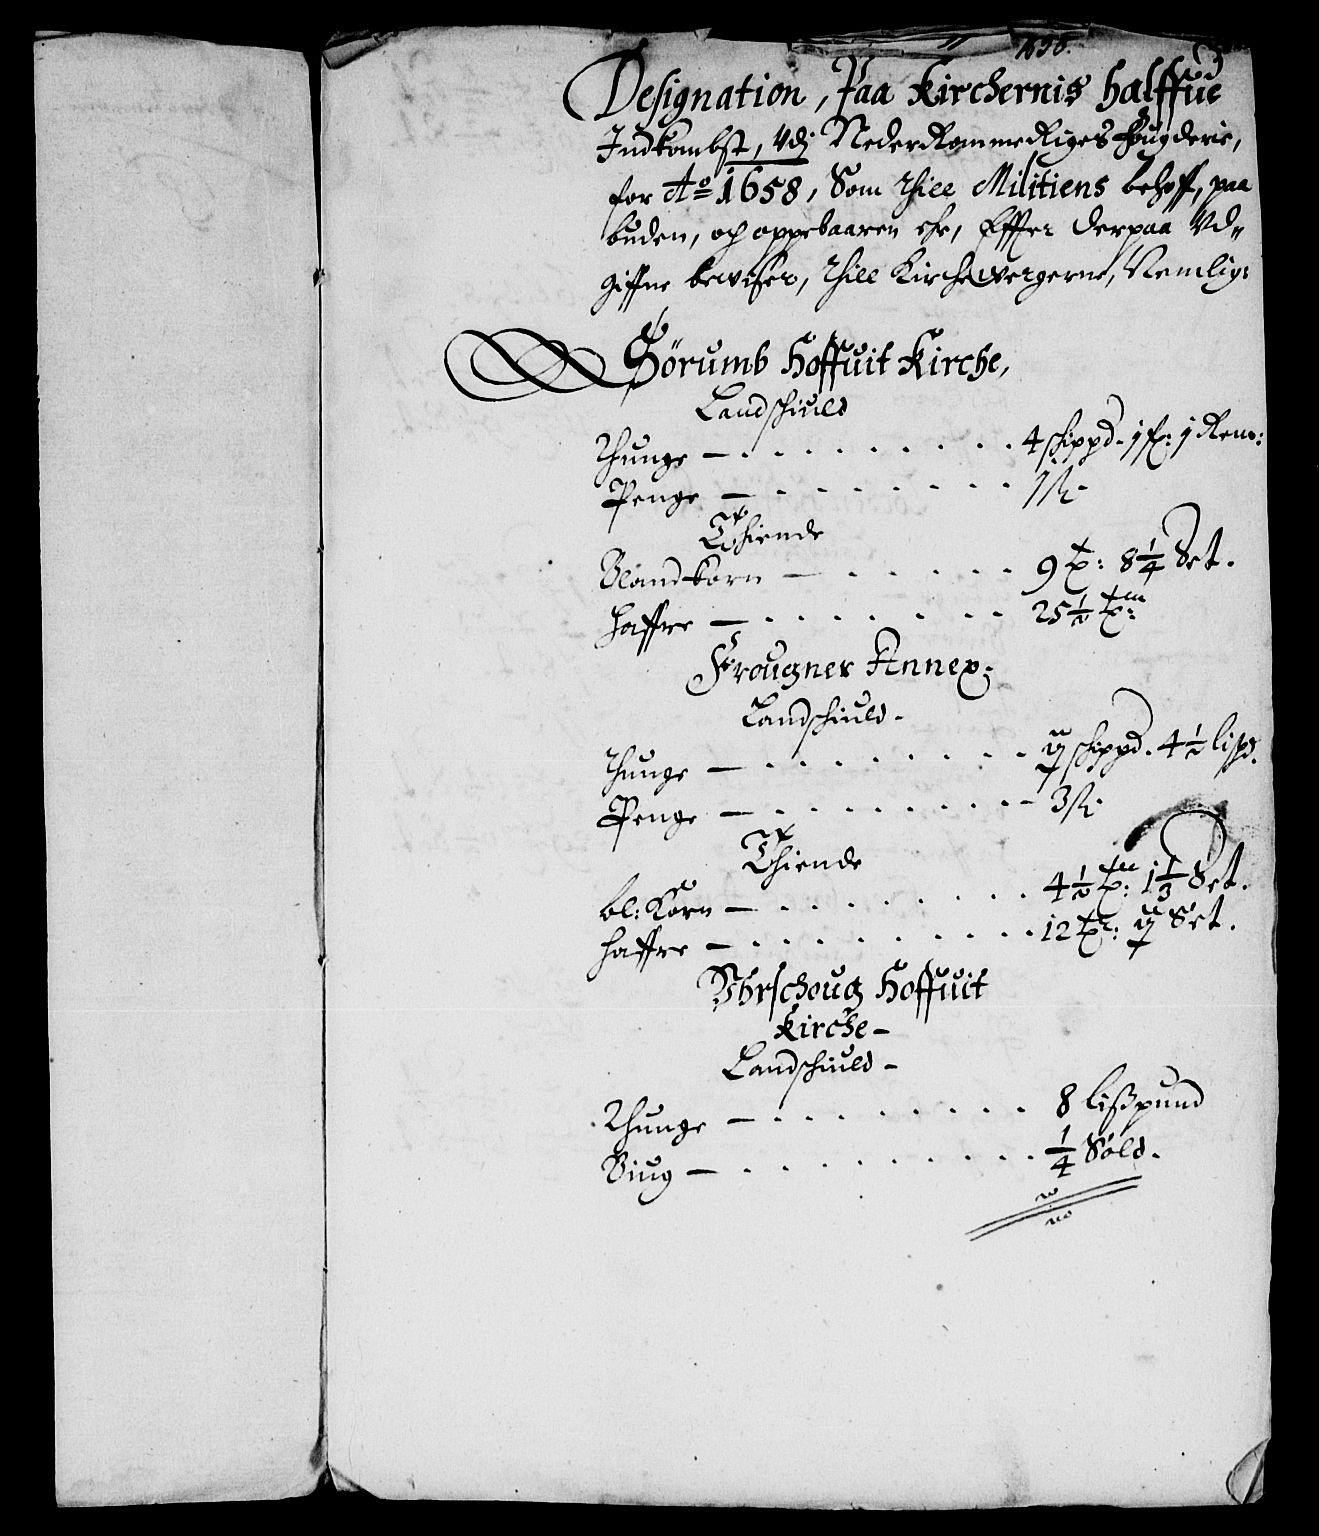 1658.
Designation, Paa Kirchernis halffue
Indkombst, Vdj NederRommeRiges fougderie,
for Ao 1658, Som thill Militiens behoff, paa
buden, och oppebaaren ehr, Effter derpaa Vd"
giffne beviser, thill Kirchewergerne, Nemlig:
Sörumb Hoffuit Kirche,
Landschiuld
Thunge — . . . . . . . 4 schippd. 1 fr: 1 Rem:
Penge — . . . . . . . 1 ß.
Thiende
Blandkorn — . . . . . 9 t: 8 1/4 Set.
Haffre — . . . . . . . 25 1/2 tr:
Frougner Annex:
Landschiuld-
Thunge — . . . . . . . ij schippd. 4 1/2 lispd.
Penge — . . . . . . . 3 ß.
Thiende
bl: Korn — . . . . . . . 4 1/2 tr: 1 1/3 Set.
Haffre — . . . . . . . 12 tr: ij Set.
Vhrschoug Hoffuit
Kirche-
Landschiuld-
Thunge — . . . . . . . 8 lißpund
Biug — . . . . . . . 1/4 Sold.